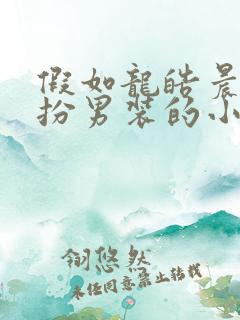 假如龍皓晨
扮男裝的小
翎悠然
未經同意禁止轉載